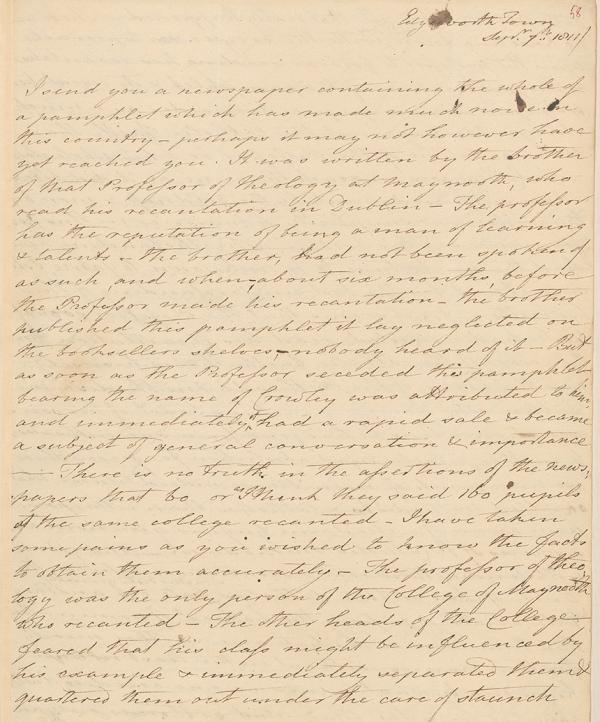 58
Edgeworth Town
Sepr. 7th. 1811
I send you a newspaper containing the whole of
a pamphlet which has made much noise in
this country – perhaps it may not however have
yet reached you. It was written by the brother
of that Professor of theology at Maynooth, who
read his recantation in Dublin – The professor
has the reputation of being a man of learning
& talents – the brother, had not been spoken of
as such, and when, about six months, before
the Professor made his recantation – the brother
published this pamphlet it lay neglected on
the booksellers shelves, – nobody heard of it – But
as soon as the Professor seceded this pamphlet
bearing the name of Crowley was attributed to him,
and immediately it had a rapid sale & became
a subject of general conversation & importance
— There is no truth in the assertions of the news,
papers that 60 or as I think they said 160 pupils
of the same college recanted – I have taken
some pains as you wished to know the facts
to obtain them accurately – The professor of theo
logy was the only person of the College of Maynooth
who recanted – The other heads of the College
feared that his class might be influenced by
his example & immediately separated them &
quartered them out under the care of staunch